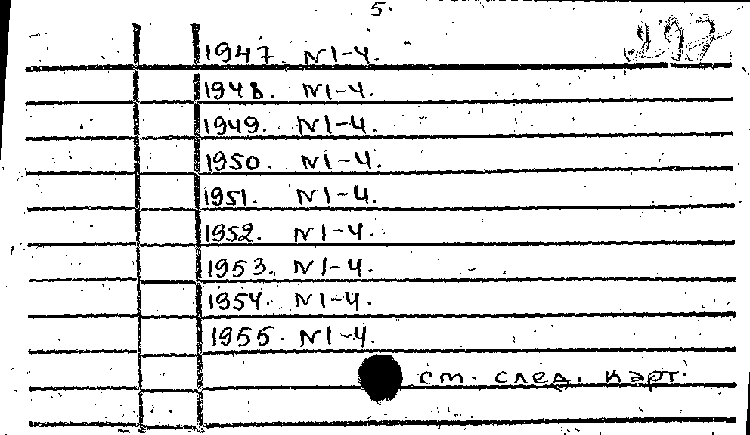 5.
297
1947. N1-4.
1948. N1-4.
1949. N1-4.
1950. N1-4.
1951. N1-4.
1952. N1-4.
1953. N1-4.
1954. N1-4.
1955. N1-4.
см. след. карт.